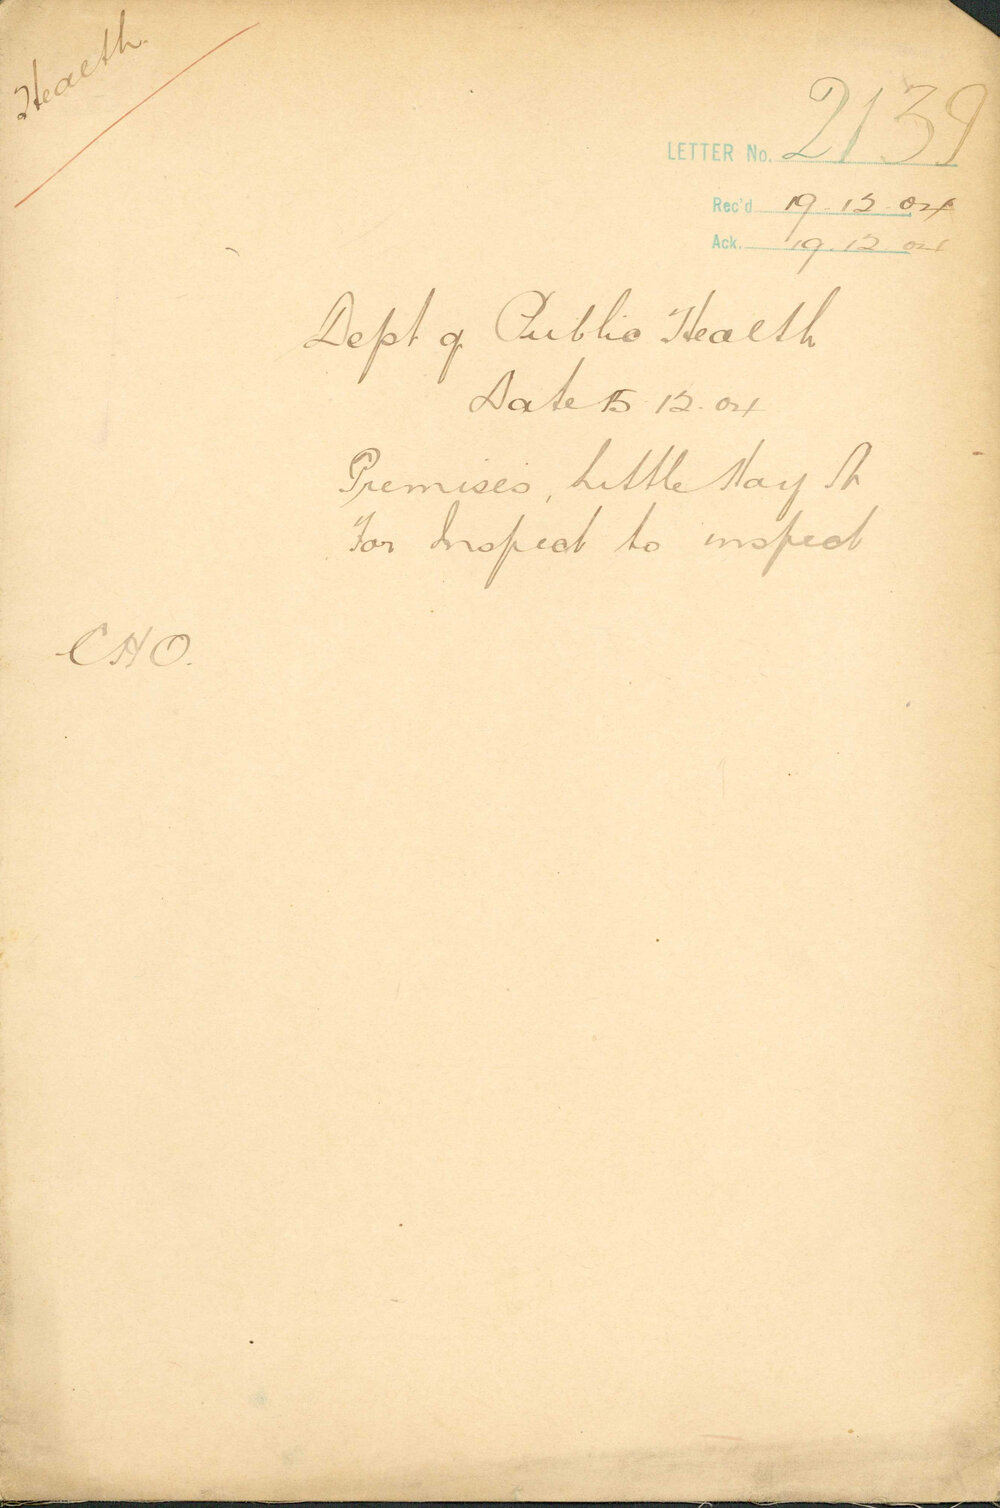 Health.
LETTER No. 2139
Rec'd 19.12.04
Ack. 19.12.04
Dept of Public Health
Date 15.12.04
Premises, Little Hay St
For Inspect to inspect
CHO.